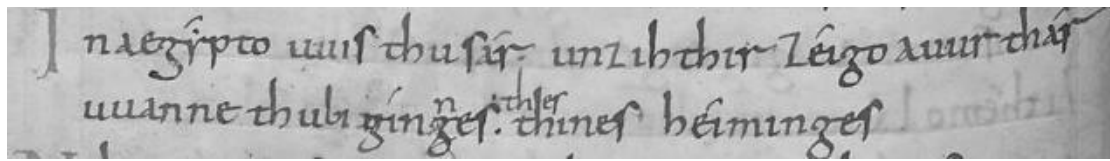 In aegýpto uuis thu sár. unz ih thir zéigo auur thár
uuanne thu bi gínnes. thes thines héiminges